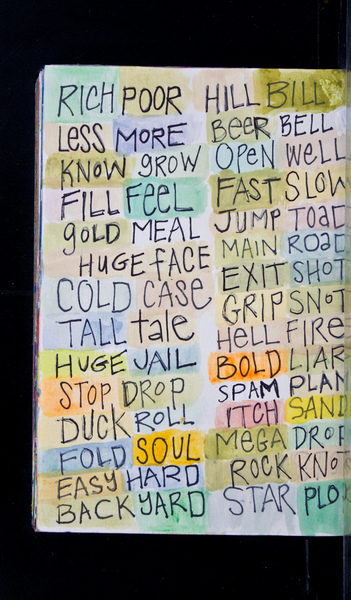 RICH POOR
LESS MORE
KNOW GROW
FILL FEEL
GOLD MEAL
HUGE FACE
COLD CASE
TALL tale
HUGE JAIL
STOP DROP
DUCK ROLL
FOLD SOUL
EASY HARD
BACKYARD
HILL BILL
BEER BELL
OPEN WELL
FAST SLOW
JUMP TOAD
MAIN ROAD
EXIT SHOT
GRIP SNOT
HELL FIRE
BOLD LIAR
SPAM PLAN
ITCH SAND
MEGA DROP
ROCK KNOT
STAR PLO